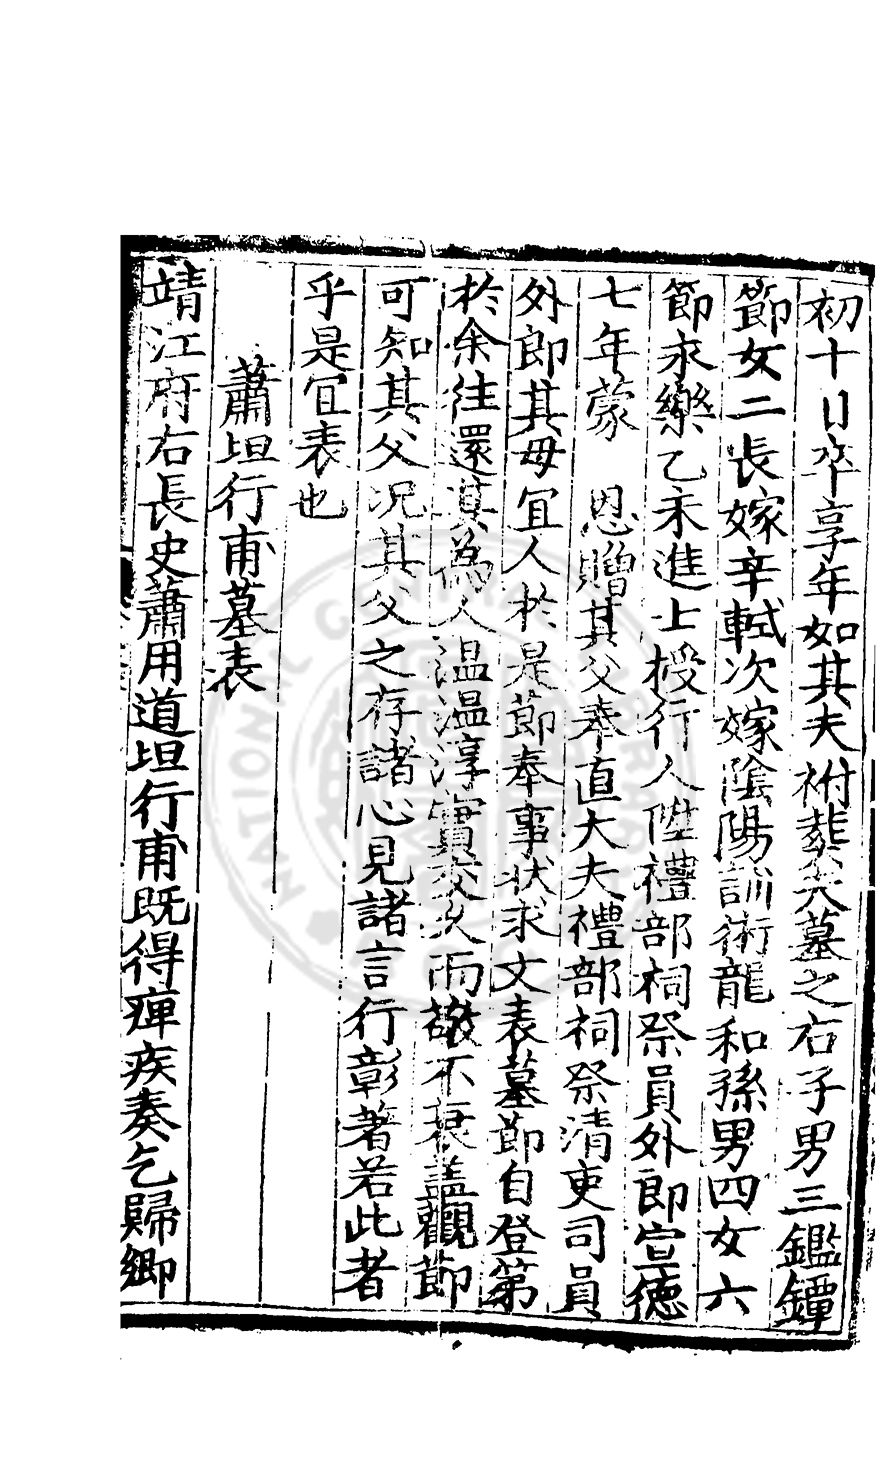 初十日卒享年如其夫祔葬夫墓之右子男三鑑鐔
節女二長嫁辛軾次嫁陰陽訓術龍和孫男四女六
節永樂乙未進士授行人陞禮部祠祭員外郎宣德
七年蒙　恩贈其父奉直大夫禮部祠祭清吏司員
外郎其母宜人於是節奉事状求文表墓節自登第
於余往還其為人温温淳實交久而敬不衰盖觀節
可知其父况其父之存諸心見諸言行彰著若此者
乎是宜表也
蕭坦行甫墓表
靖江府右長史蕭用道坦行甫既得痺疾奏乞歸鄉
NATIONAL CENTRAL LIBRARY